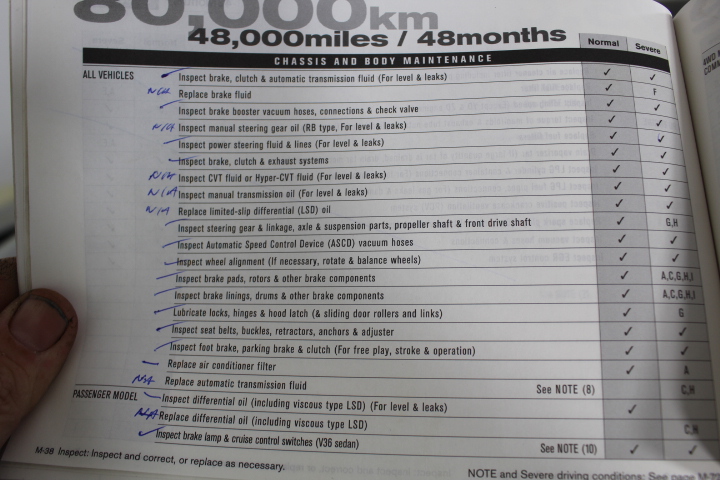 80,000km
48,000miles / 48months
Normal Severe
CHASSIS AND BODY MAINTENANCE
ALL VEHICLES Inspect brake, clutch & automatic transmission fluid (For level & leaks) ✓ ✓
N/A Replace brake fluid ✓ F
Inspect brake booster vacuum hoses, connections & check valve ✓ ✓
N/A Inspect manual steering gear oil (RB type, For level & leaks) ✓ ✓
Inspect power steering fluid & lines (For level & leaks) ✓ ✓
Inspect brake, clutch & exhaust systems ✓ ✓
N/A Inspect CVT fluid or Hyper-CVT fluid (For level & leaks) ✓ ✓
N/A Inspect manual transmission oil (For level & leaks) ✓ ✓
N/A Replace limited-slip differential (LSD) oil ✓ ✓
Inspect steering gear & linkage, axle & suspension parts, propeller shaft & front drive shaft ✓ G,H
Inspect Automatic Speed Control Device (ASCD) vacuum hoses ✓ ✓
Inspect wheel alignment (If necessary, rotate & balance wheels) ✓ ✓
Inspect brake pads, rotors & other brake components ✓ A,C,G,H,I
Inspect brake linings, drums & other brake components ✓ A,C,G,H,I
Lubricate locks, hinges & hood latch (& sliding door rollers and links) ✓ G
Inspect seat belts, buckles, retractors, anchors & adjuster ✓ ✓
Inspect foot brake, parking brake & clutch (For free play, stroke & operation) ✓ ✓
Replace air conditioner filter ✓ A
N/A Replace automatic transmission fluid See NOTE (8) C,H
PASSENGER MODEL Inspect differential oil (including viscous type LSD) (For level & leaks) ✓
N/A Replace differential oil (including viscous type LSD) C,H
Inspect brake lamp & cruise control switches (V36 sedan) See NOTE (10) ✓ ✓
M-38 Inspect: Inspect and correct, or replace as necessary.
NOTE and Severe driving conditions: See page
4WD